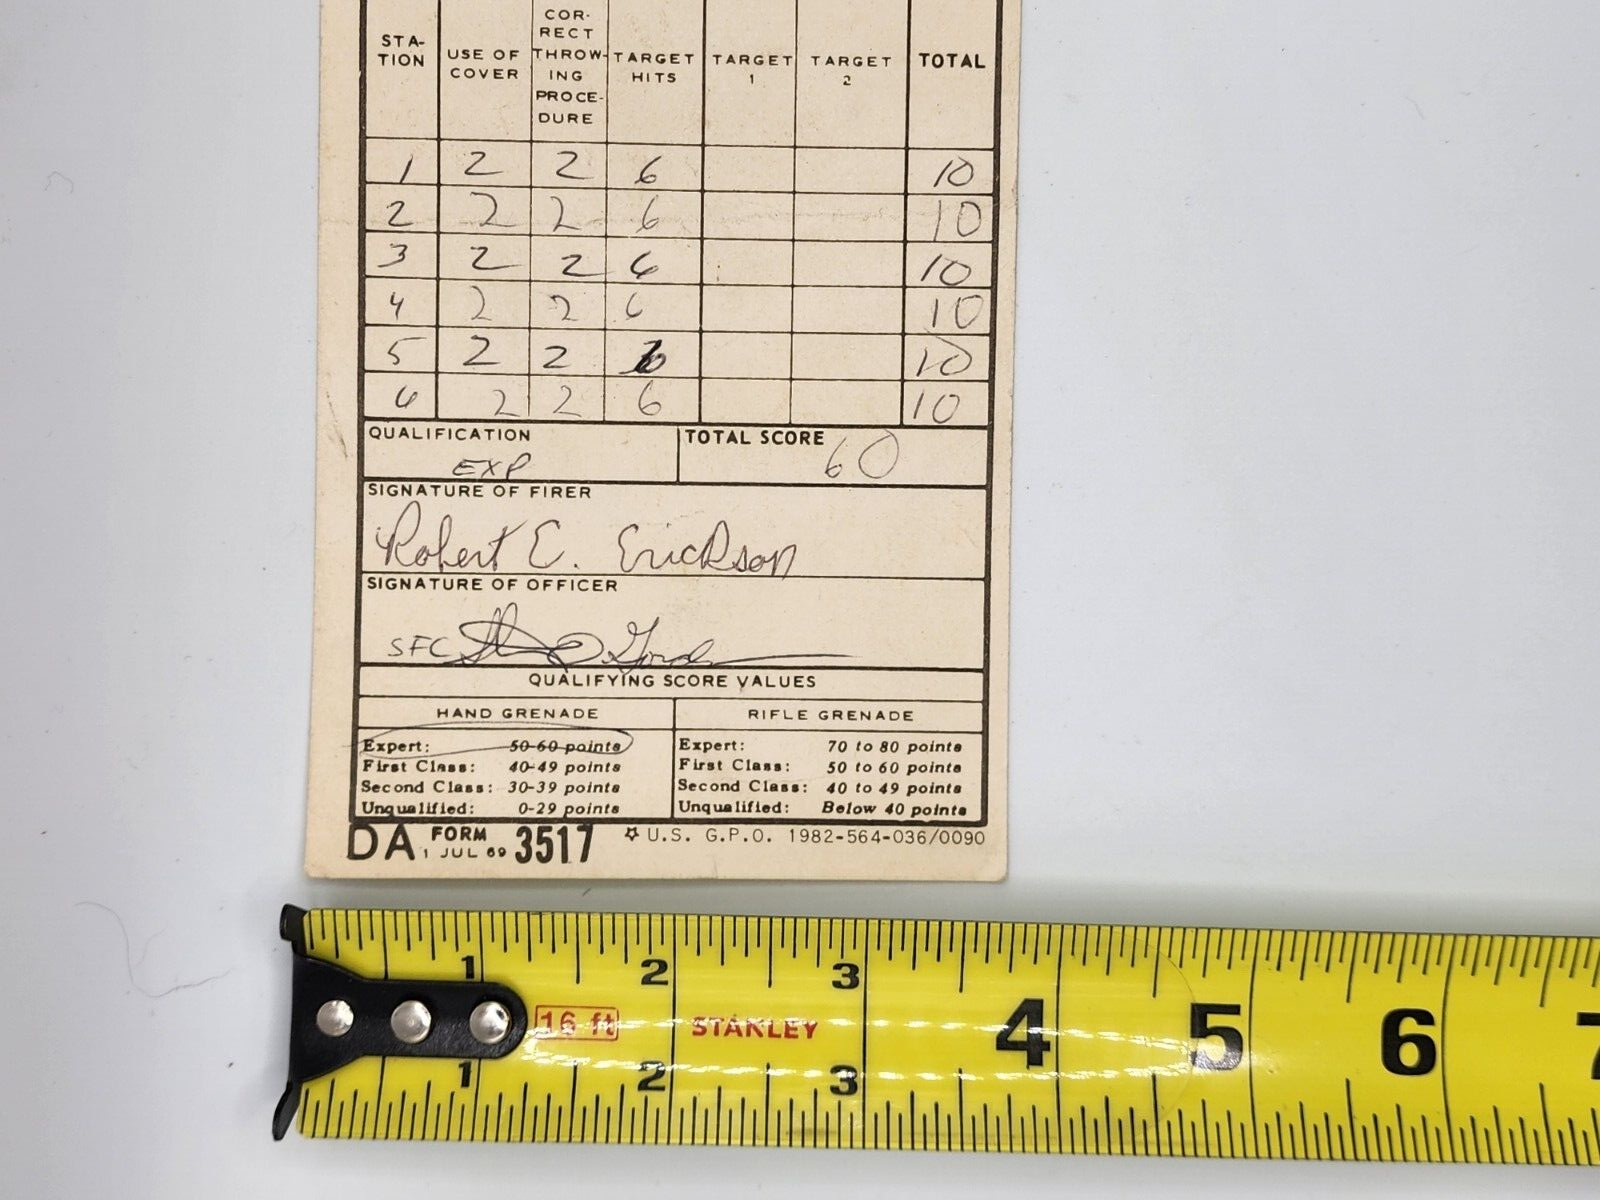 STA-
TION
USE OF
COVER
COR-
RECT
THROW-
ING
PROCE-
DURE
TARGET
HITS
TARGET
1
TARGET
2
TOTAL
1 2 2 6 10
2 2 2 6 10
3 2 2 6 10
4 2 2 6 10
5 2 2 6 10
6 2 2 6 10
QUALIFICATION
EXP
TOTAL SCORE
60
SIGNATURE OF FIRER
Robert E. Erickson
SIGNATURE OF OFFICER
SFC
QUALIFYING SCORE VALUES
HAND GRENADE
Expert: 50-60 points
First Class: 40-49 points
Second Class: 30-39 points
Unqualified: 0-29 points
RIFLE GRENADE
Expert: 70 to 80 points
First Class: 50 to 60 points
Second Class: 40 to 49 points
Unqualified: Below 40 points
DA FORM 3517
1 JUL 69
☆ U.S. G.P.O. 1982-564-036/0090
1 2 3
16 ft STANLEY 4 5 6 7
1 2 3